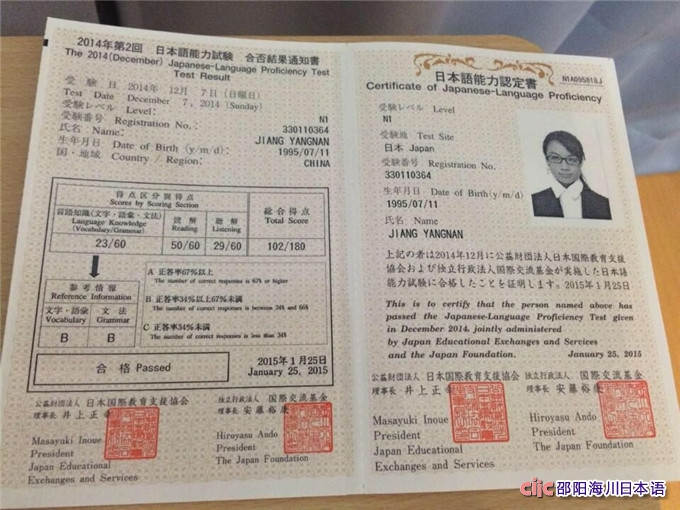 2014年第2回 日本語能力試験 合否結果通知書
The 2014(December) Japanese-Language Proficiency Test
Test Result
受験日 2014年 12月 7日(日曜日)
Test Date December 7, 2014 (Sunday)
受験レベル Level: N1
受験番号 Registration No.: 330110364
氏名 Name: JIANG YANGNAN
生年月日 Date of Birth (y/m/d): 1995/07/11
国・地域 Country / Region: CHINA
得点区分別得点
Scores by Scoring Section
総合得点
Total Score
言語知識(文字・語彙・文法)
Language Knowledge
(Vocabulary/Grammar)
読解
Reading
聴解
Listening
23/60 50/60 29/60 102/180
参考情報
Reference Information
文字・語彙
Vocabulary
文法
Grammar
B B
A 正答率67%以上
The number of correct responses is 67% or higher
B 正答率34%以上67%未満
The number of correct responses is between 34% and 66%
C 正答率34%未満
The number of correct responses is less than 34%
合格 Passed
2015年1月25日
January 25, 2015
公益財団法人 日本国際教育支援協会
理事長 井上正幸
Masayuki Inoue
President
Japan Educational
Exchanges and Services
独立行政法人 国際交流基金
理事長 安藤裕康
Hiroyasu Ando
President
The Japan Foundation
N1A095818J
日本語能力認定書
Certificate of Japanese-Language Proficiency
受験レベル Level
N1
受験地 Test Site
日本 Japan
受験番号 Registration No.
330110364
生年月日 Date of Birth(y/m/d)
1995/07/11
氏名 Name
JIANG YANGNAN
上記の者は2014年12月に公益財団法人日本国際教育支援
協会および独立行政法人国際交流基金が実施した日本語
能力試験に合格したことを証明します。2015年1月25日
This is to certify that the person named above has
passed the Japanese-Language Proficiency Test given
in December 2014, jointly administered
by Japan Educational Exchanges and Services
and the Japan Foundation. January 25, 2015
公益財団法人 日本国際教育支援協会
理事長 井上正幸
Masayuki Inoue
President
Japan Educational
Exchanges and Services
独立行政法人 国際交流基金
理事長 安藤裕康
Hiroyasu Ando
President
The Japan Foundation
clic邵阳海川日本语